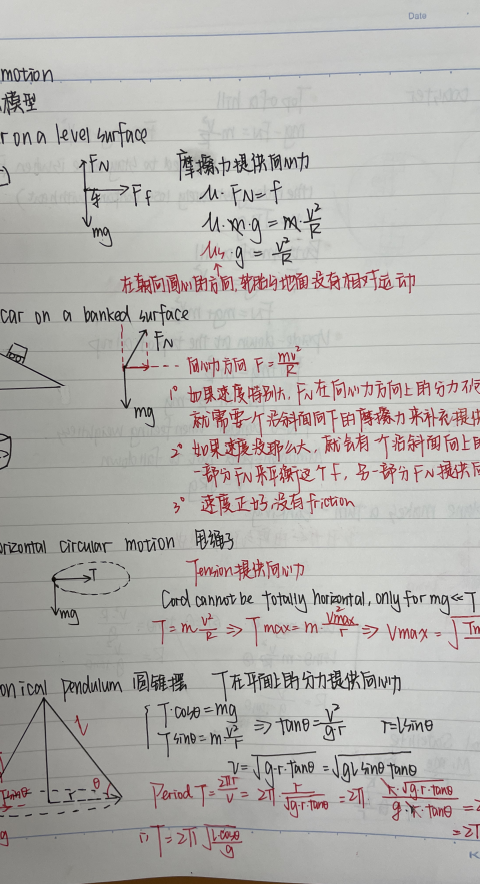 Date
motion
模型
r on a level surface
FN
摩擦力提供向心力
Ff
mg
μ·FN=f
μ·m·g=m·v²/R
μs·g=v²/R
在朝向圆心的方向,轮胎与地面没有相对运动
car on a banked surface
FN
mg
向心力方向 F=mv²/R
1° 如果速度特别大,FN在向心力方向上的分力不
就需要一个沿斜面向下的摩擦力来补充提供
2° 如果速度没那么大,就会有一个沿斜面向上的
一部分FN来平衡这个f,另一部分FN提供向
3° 速度正好,没有friction
orizontal circular motion 甩绳子
T
mg
Tension提供向心力
Cord cannot be totally horizontal, only for mg≪T
T=m·v²/R ⇒ Tmax=m·v²max/r ⇒ Vmax=√Tm
onical pendulum 圆锥摆 T在平面上的分力提供向心力
l
θ
Tsinθ
T·cosθ=mg
Tsinθ=m·v²/r
⇒ tanθ=v²/g·r
r=lsinθ
v=√g·r·tanθ=√gl sinθ tanθ
Period T=2πr/v=2π r/√g·r·tanθ=2π r·√gr·tanθ/g·r·tanθ=2
=2π
T=2π√l·cosθ/g